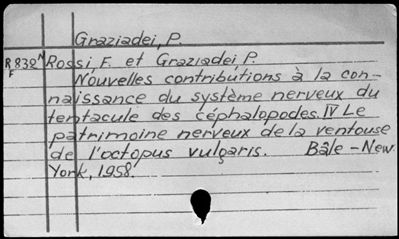 Graziadei, P.
R 832 A Rossi, F. et Graziadei P.
F
Nouvelles contributions à la con-
naissance du système nerveux du
tentacule des céphalopodes. IV Le
patrimoine nerveux de la ventouse
de l'octopus vulgaris. Bâle - New
York, 1958.